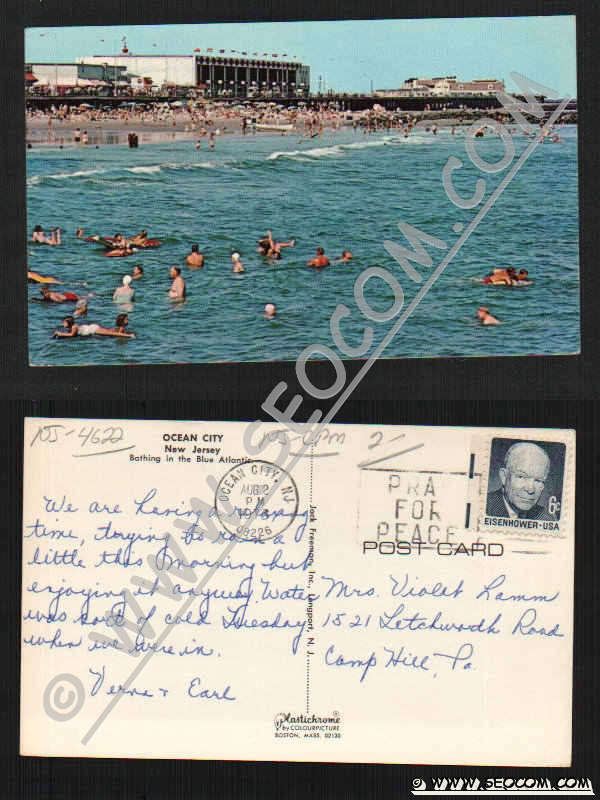 © WWW.SEOCOM.COM
NJ-4622
OCEAN CITY
New Jersey
Bathing in the Blue Atlantic
NJ-CPM 2-
OCEAN CITY, NJ
AUG 2
PM
08226
PRA
FOR
PEACE
6¢
EISENHOWER·USA
POST CARD
We are having a
time, trying to rain a
little this morning but
enjoying it anyway. Water
was sort of cold Tuesday
when we were in.
Verna & Earl
Mrs. Violet Lamm
1521 Letchworth Road
Camp Hill, Pa.
Jack Freeman, Inc., Longport, N. J.
Plastichrome ®
by COLOURPICTURE
BOSTON, MASS. 02130
© WWW.SEOCOM.COM